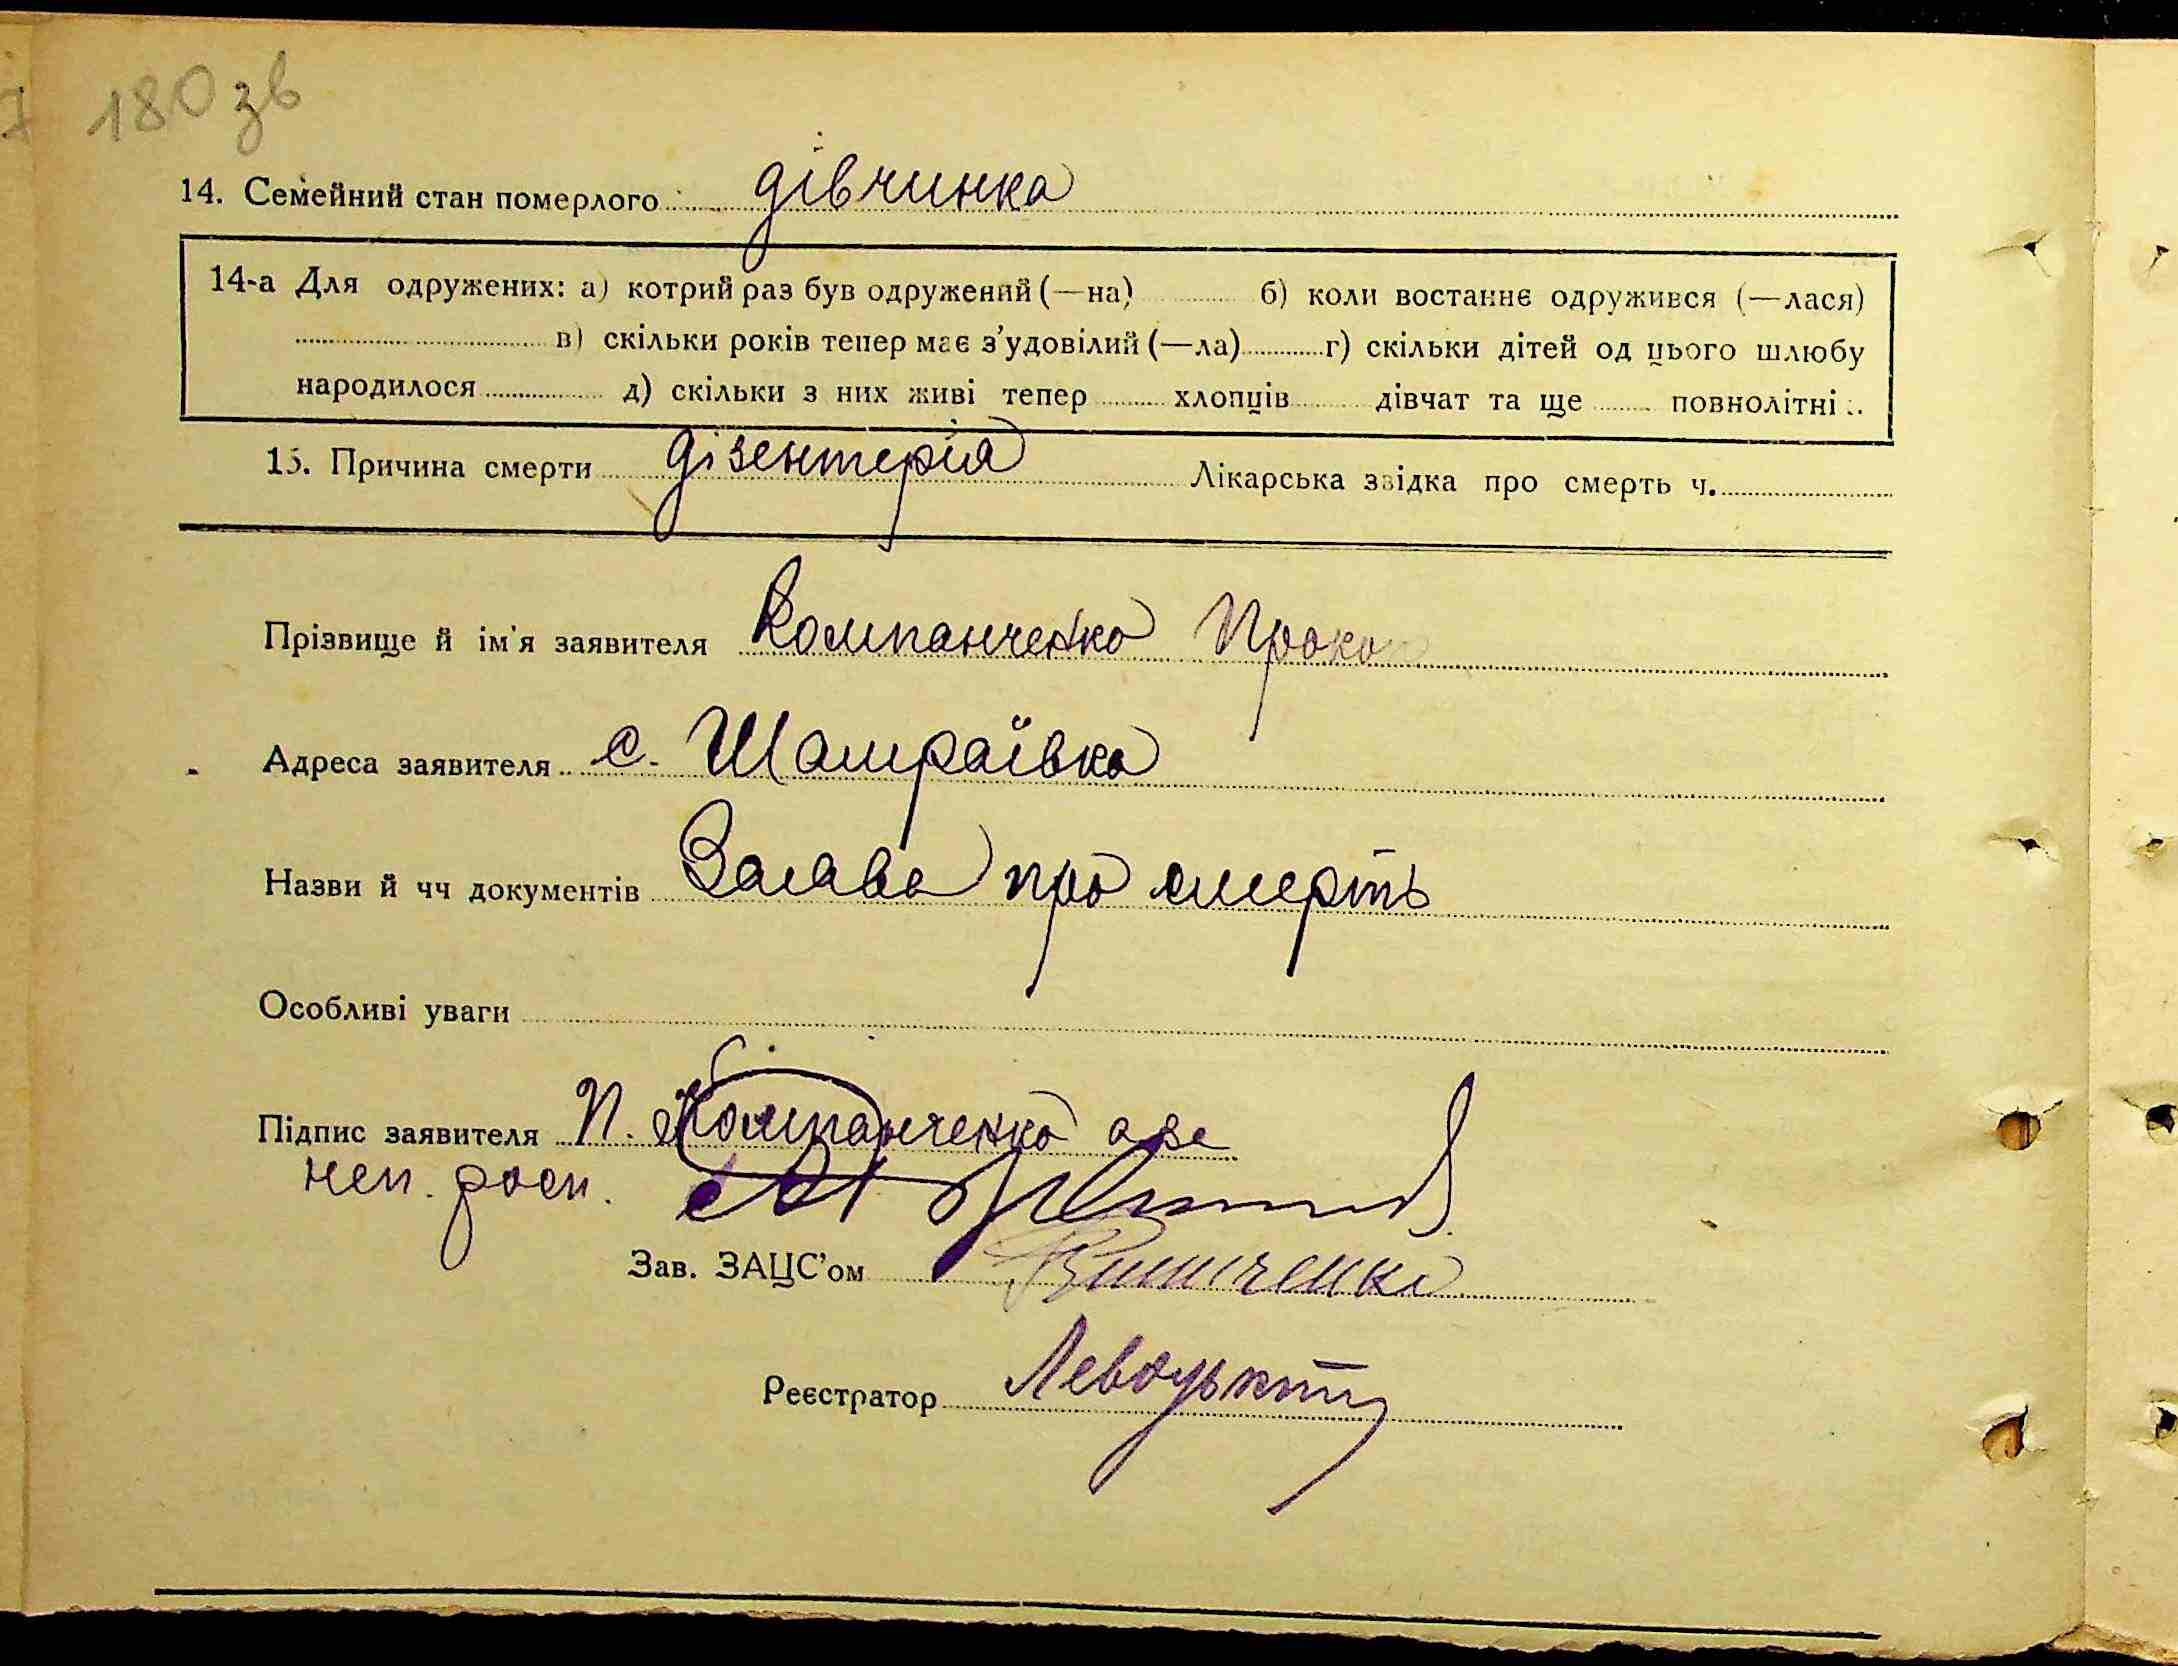 180 зв
14. Семейний стан померлого дівчинка
14-а Для одружених: а) котрий раз був одружений (—на) б) коли востаннє одружився (—лася)
в) скільки років тепер має з'удовілий (—ла) г) скільки дітей од цього шлюбу
народилося д) скільки з них живі тепер хлопців дівчат та ще повнолітні
15. Причина смерти дізентерія Лікарська звідка про смерть ч.
Прізвище й ім'я заявителя Компанченко Проко
Адреса заявителя с. Шамраївка
Назви й чч документів Заява про смерть
Особливі уваги
Підпис заявителя П. Компанченко
неп. росп.
Зав. ЗАЦС'ом
Реєстратор